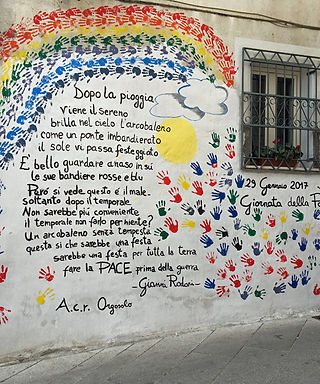 Dopo la pioggia
viene il sereno
brilla nel cielo l'arcobaleno
come un ponte imbandierato
il sole vi passa festeggiato
È bello guardare a naso in su
le sue bandiere rosse e blu
Però si vede, questo è il male
soltanto dopo il temporale
Non sarebbe più conveniente
il temporale non farlo per niente?
Un arcobaleno senza tempesta
questa sì che sarebbe una festa
sarebbe una festa per tutta la terra
fare la PACE prima della guerra
- Gianni Rodari -
A.c.r. Orgosolo
29 Gennaio 2017
Giornata della